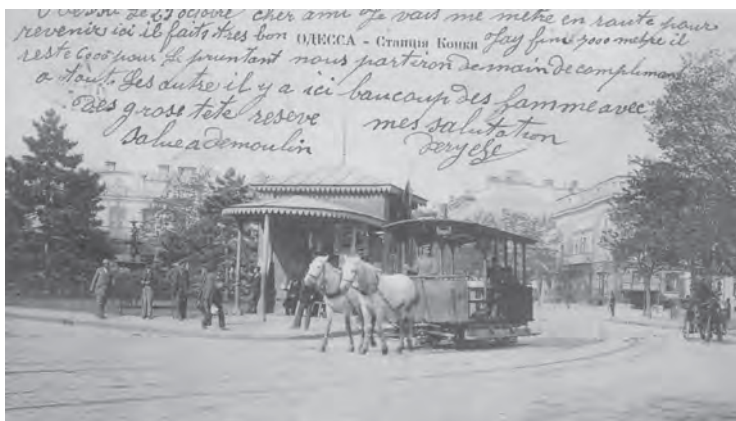 le 23 octobre cher ami Je vais me metre en route pour
revenir ici il faits tres bon
ОДЕССА - Станція Конки
Jay fini 7000 metre il
reste 6000 pour le prentant nous partiron demain de compliman
a tout les autre il y a ici baucoup des famme avec
Des grose tete reserve mes salutation
Salue a demoulin